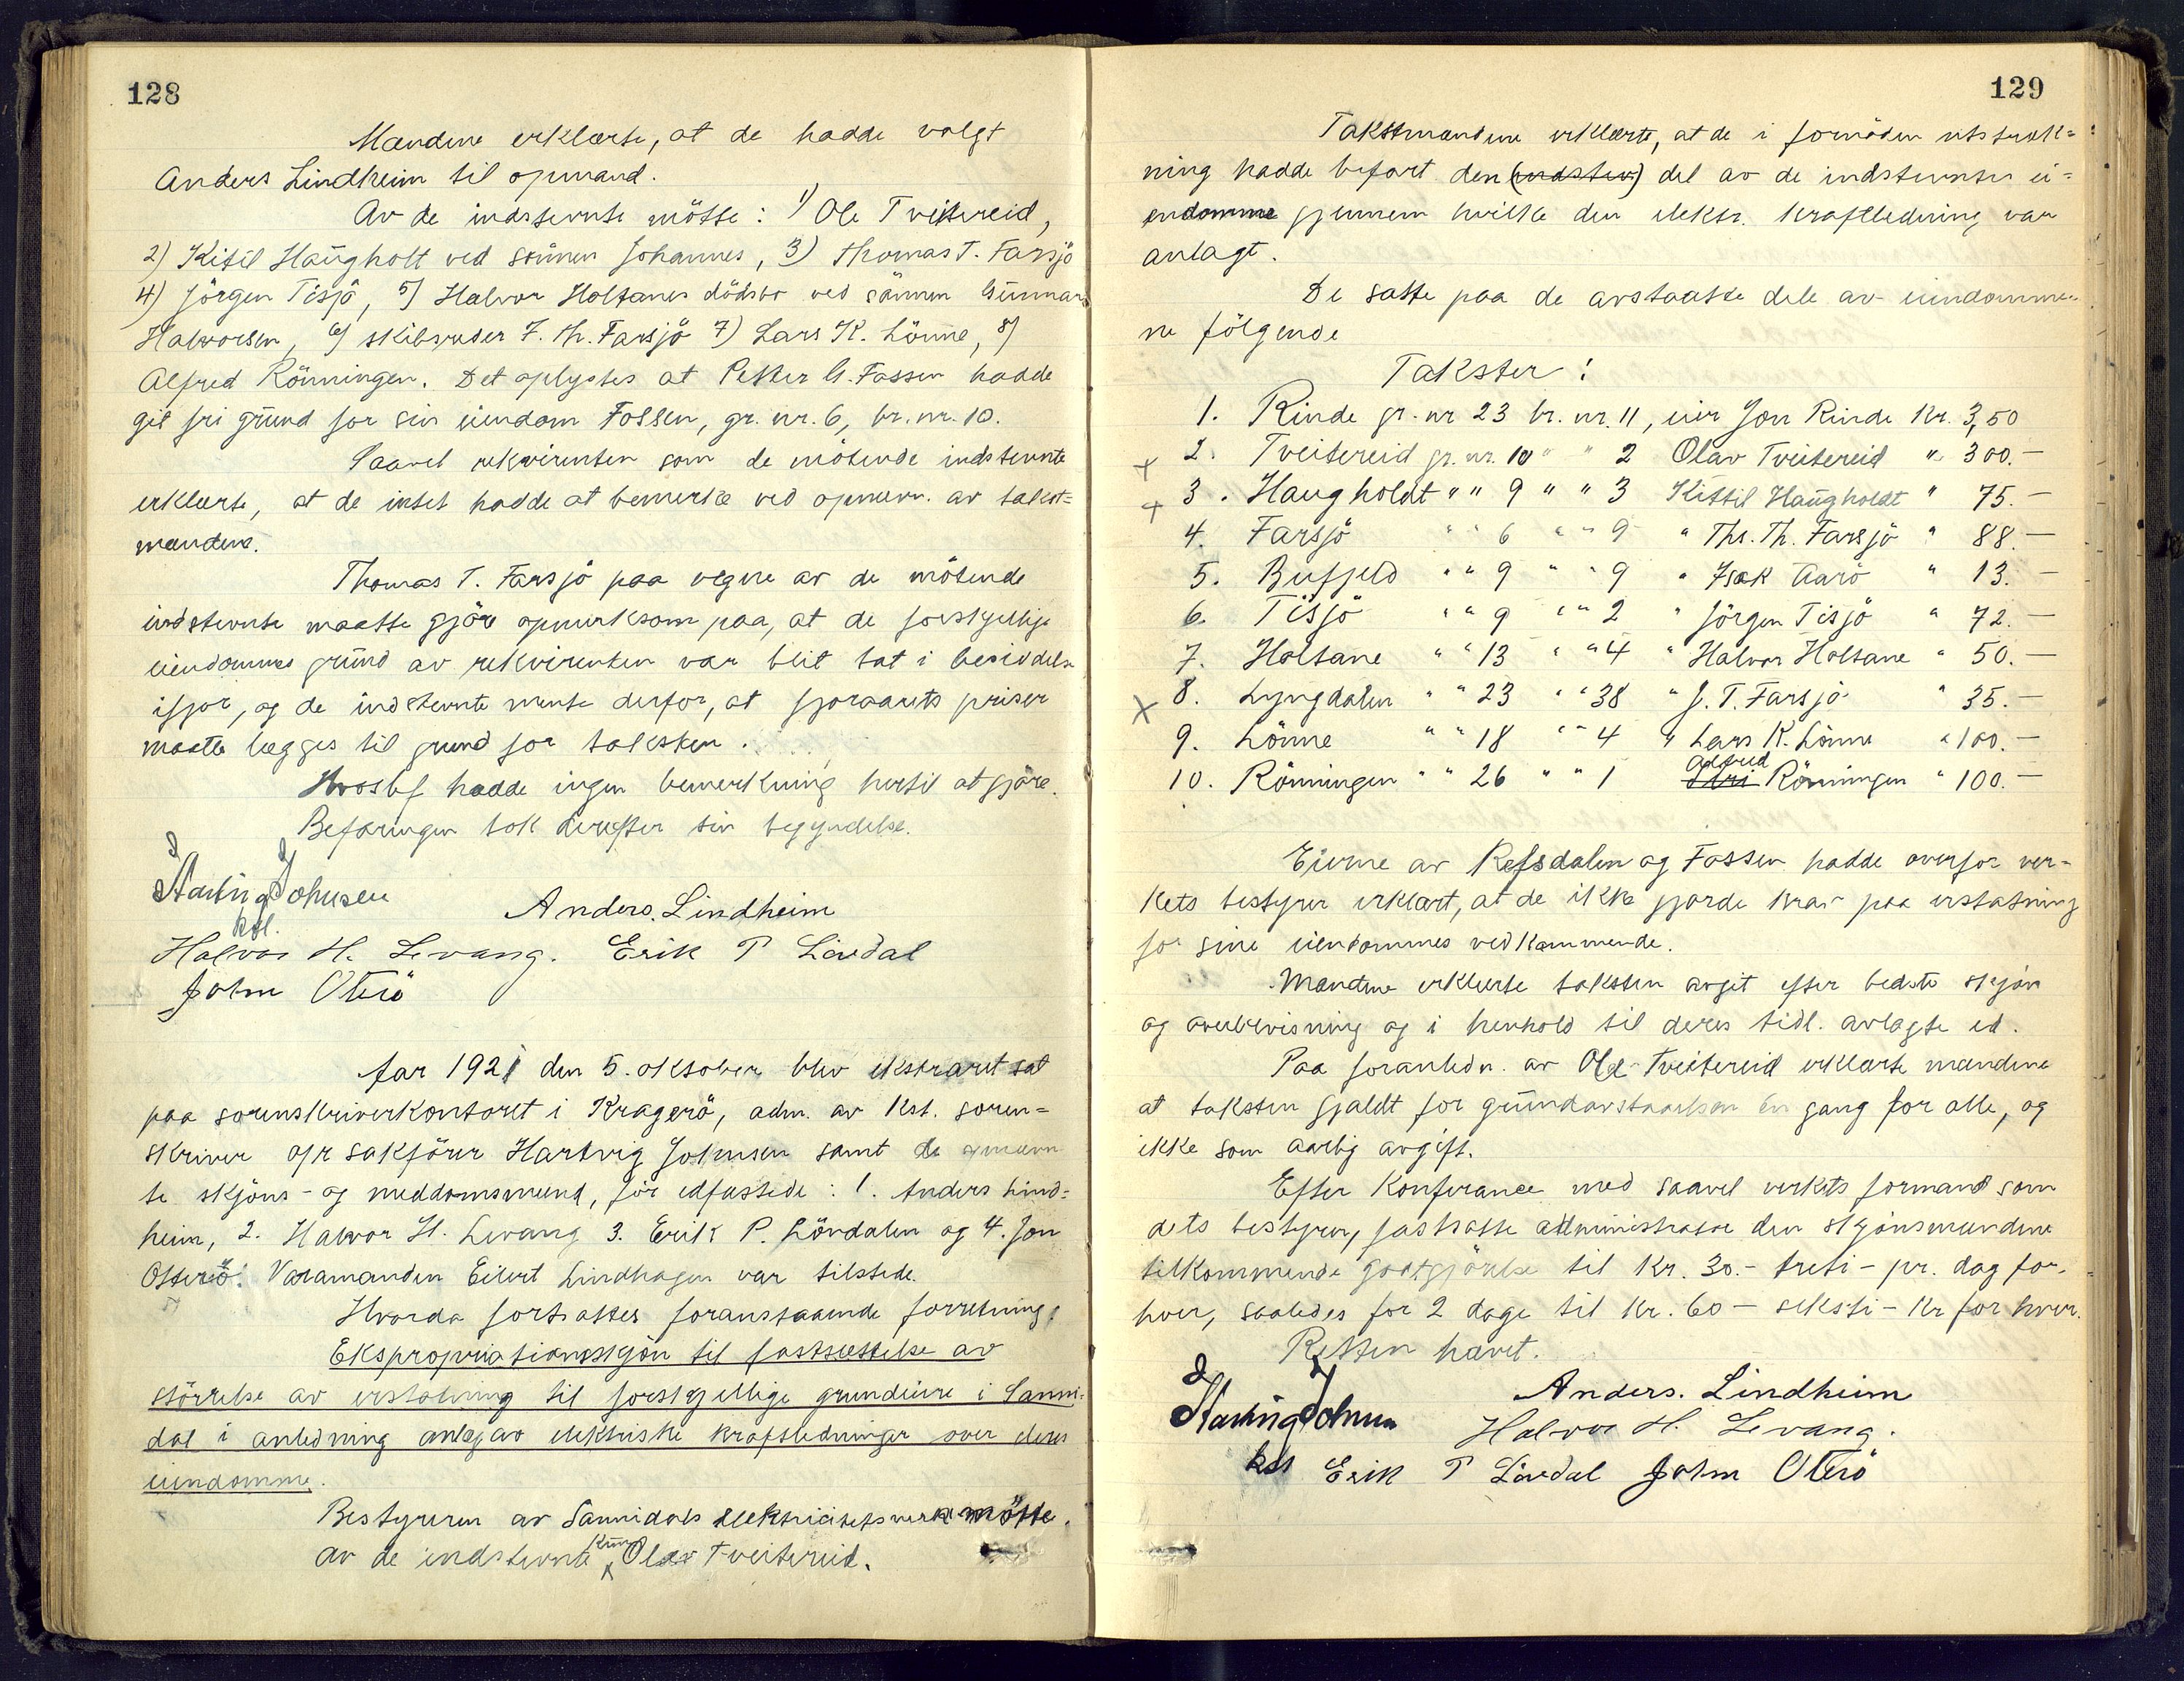 128
Mændene erklærte, at de hadde valgt
Anders Lindheim til opmand.
Av de indstevnte mötte: 1) Ole Tveitereid,
2) Kitil Haugholt ved sönnen Johannes, 3) Thomas T. Farsjö
4) Jörgen Tisjö, 5) Halvor Holtanes dödsbo ved sönnen Gunnar
Halvorsen, 6) skibsreder J. Th. Farsjö 7) Lars K. Lönne, 8)
Alfred Rönningen. Det oplystes at Petter G. Fossen hadde
git fri grund for sin eiendom Fossen, gr. nr. 6, br. nr. 10.
Saavel rekvirenten som de mötende indstevnte
erklærte, at de intet hadde at bemerke ved opnævn. av takst=
mændene.
Thomas T. Farsjö paa vegne av de mötende
indstevnte maatte gjöre opmerksom paa, at de forskjellige
eiendommes grund av rekvirenten var blit tat i besiddelse
ifjor, og de indstevnte mente derfor, at fjoraarets priser
maatte lægges til grund for taksten.
hadde ingen bemerkning hertil at gjöre.
Befaringen tok derefter sin begyndelse.
Hartvig Johnsen
kst.
Anders. Lindheim
Halvor H. Levang. Erik P Lövdal
John Oterö
Aar 1921 den 5. oktober blev ekstraret sat
paa sorenskriverkontoret i Kragerö, adm. av kst. soren=
skriver o/r sakförer Hartvig Johnsen samt de opnævn
te skjöns- og meddomsmænd, för edfæstede: 1. Anders Lind=
heim, 2. Halvor H. Levang 3. Erik P. Lövdalen og 4. Jon
Otterö. Varamanden Eilert Lindhagen var tilstede.
Hvorda fortsattes foranstaaende forretning:
Ekspropriationsskjön til fastsættelse av
störrelse av erstatning til forskjellige grundeiere i Sanni=
dal i anledning anlæg av elektriske kraftledninger over deres
eiendomme.
Bestyreren av Sannidals elektricitetsverk mötte.
Av de indstevnte kun Olav Tveitereid.
129
Takstmændene erklærte, at de i fornöden utstræk=
ning hadde befart den (indstev) del av de indstevntes ei=
endomme gjennem hvilke den elektr. kraftledning var
anlagt.
De satte paa de avstaatte dele av eiendomme=
ne fölgende
Takster:
1. Rinde gr. nr 23 br. nr. 11, eier Jon Rinde Kr. 3,50
x 2. Tveitereid gr. nr. 10 " " 2 Olav Tveitereid " 300.—
x 3. Haugholdt " " 9 " " 3 Kittil Haugholdt " 75.—
4. Farsjö " " 6 " " 9 " Ths. Th. Farsjö " 88.—
5. Bufjeld " " 9 " " 9 " Isak Aarö " 13.—
6. Tisjö " " 9 " " 2 " Jörgen Tisjö " 72.—
7. Holtane " " 13 " " 4 " Halvor Holtane " 50.—
x 8. Lyngdalen " " 23 " " 38 " J. T. Farsjö " 35.—
9. Lönne " " 18 " " 4 " Lars K. Lönne " 100.—
10. Rönningen " " 26 " " 1 Alfred Rönningen " 100.—
Eierne av Refsdalen og Fossen hadde overfor ver=
kets bestyrer erklært, at de ikke gjorde krav paa erstatning
for sine eiendommes vedkommende.
Mændene erklærte taksten avgit efter bedste skjön
og overbevisning og i henhold til deres tidl. avlagte ed.
Paa foranledn. av Ole Tveitereid erklærte mændene
at taksten gjaldt for grundavstaaelsen én gang for alle, og
ikke som aarlig avgift.
Efter konferance med saavel verkets formand som
dets bestyrer, fastsatte administrator den skjönsmændene
tilkommende godtgjörelse til kr. 30.- treti - pr. dag for
hver, saaledes for 2 dage til kr. 60 - seksti - kr for hver.
Retten hævet.
Hartvig Johnsen
kst
Anders. Lindheim
Halvor H. Levang.
Erik P Lövdal John Oterö